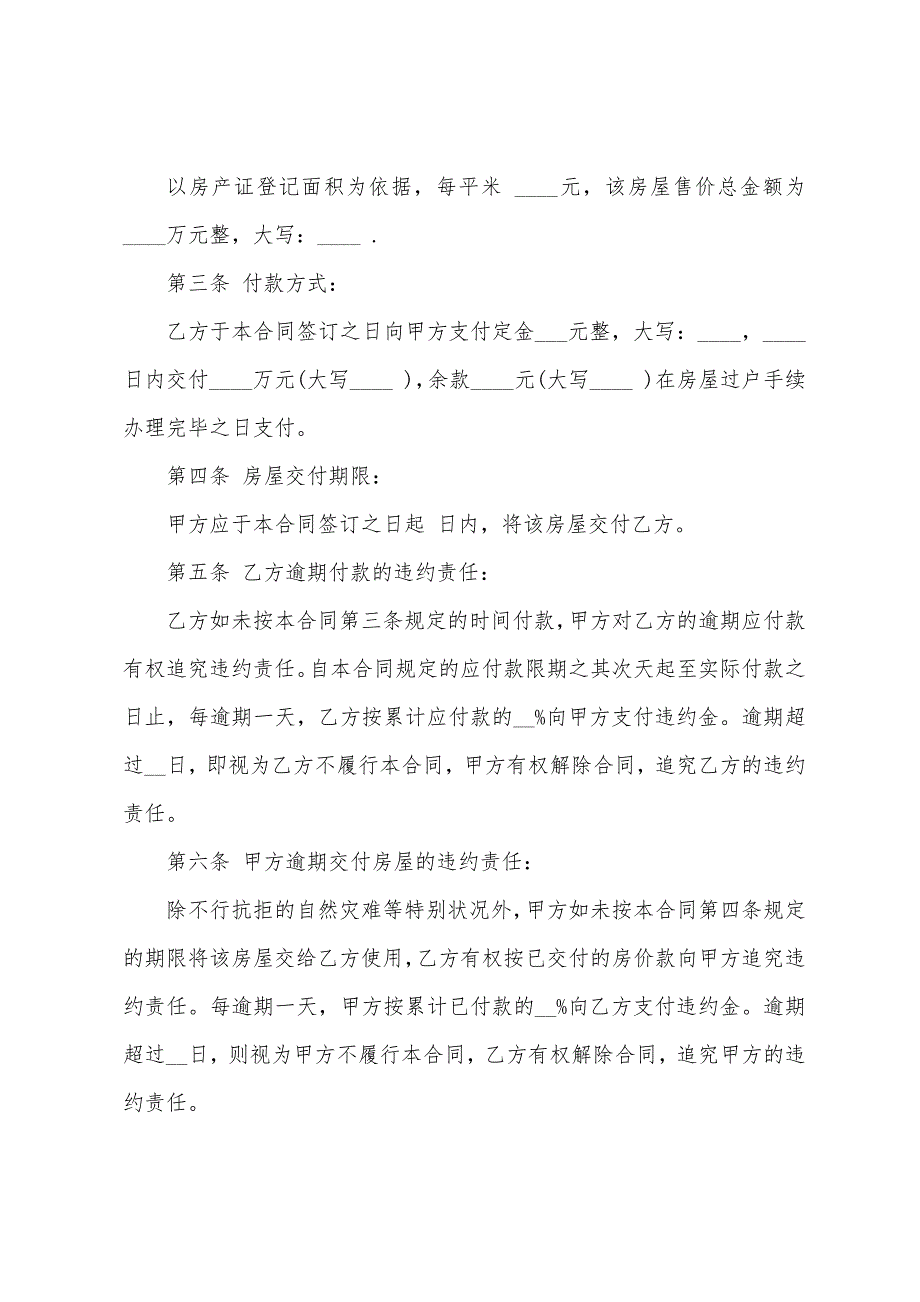 以房产证登记面积为依据，每平米 ____元，该房屋售价总金额为
____万元整，大写：____ .
第三条 付款方式：
乙方于本合同签订之日向甲方支付定金___元整，大写：____，____
日内交付____万元(大写____ )，余款____元(大写____ )在房屋过户手续
办理完毕之日支付。
第四条 房屋交付期限：
甲方应于本合同签订之日起 日内，将该房屋交付乙方。
第五条 乙方逾期付款的违约责任：
乙方如未按本合同第三条规定的时间付款，甲方对乙方的逾期应付款
有权追究违约责任。自本合同规定的应付款限期之其次天起至实际付款之
日止，每逾期一天，乙方按累计应付款的__%向甲方支付违约金。逾期超
过__日，即视为乙方不履行本合同，甲方有权解除合同，追究乙方的违约
责任。
第六条 甲方逾期交付房屋的违约责任：
除不行抗拒的自然灾难等特别状况外，甲方如未按本合同第四条规定
的期限将该房屋交给乙方使用，乙方有权按已交付的房价款向甲方追究违
约责任。每逾期一天，甲方按累计已付款的__%向乙方支付违约金。逾期
超过__日，则视为甲方不履行本合同，乙方有权解除合同，追究甲方的违
约责任。